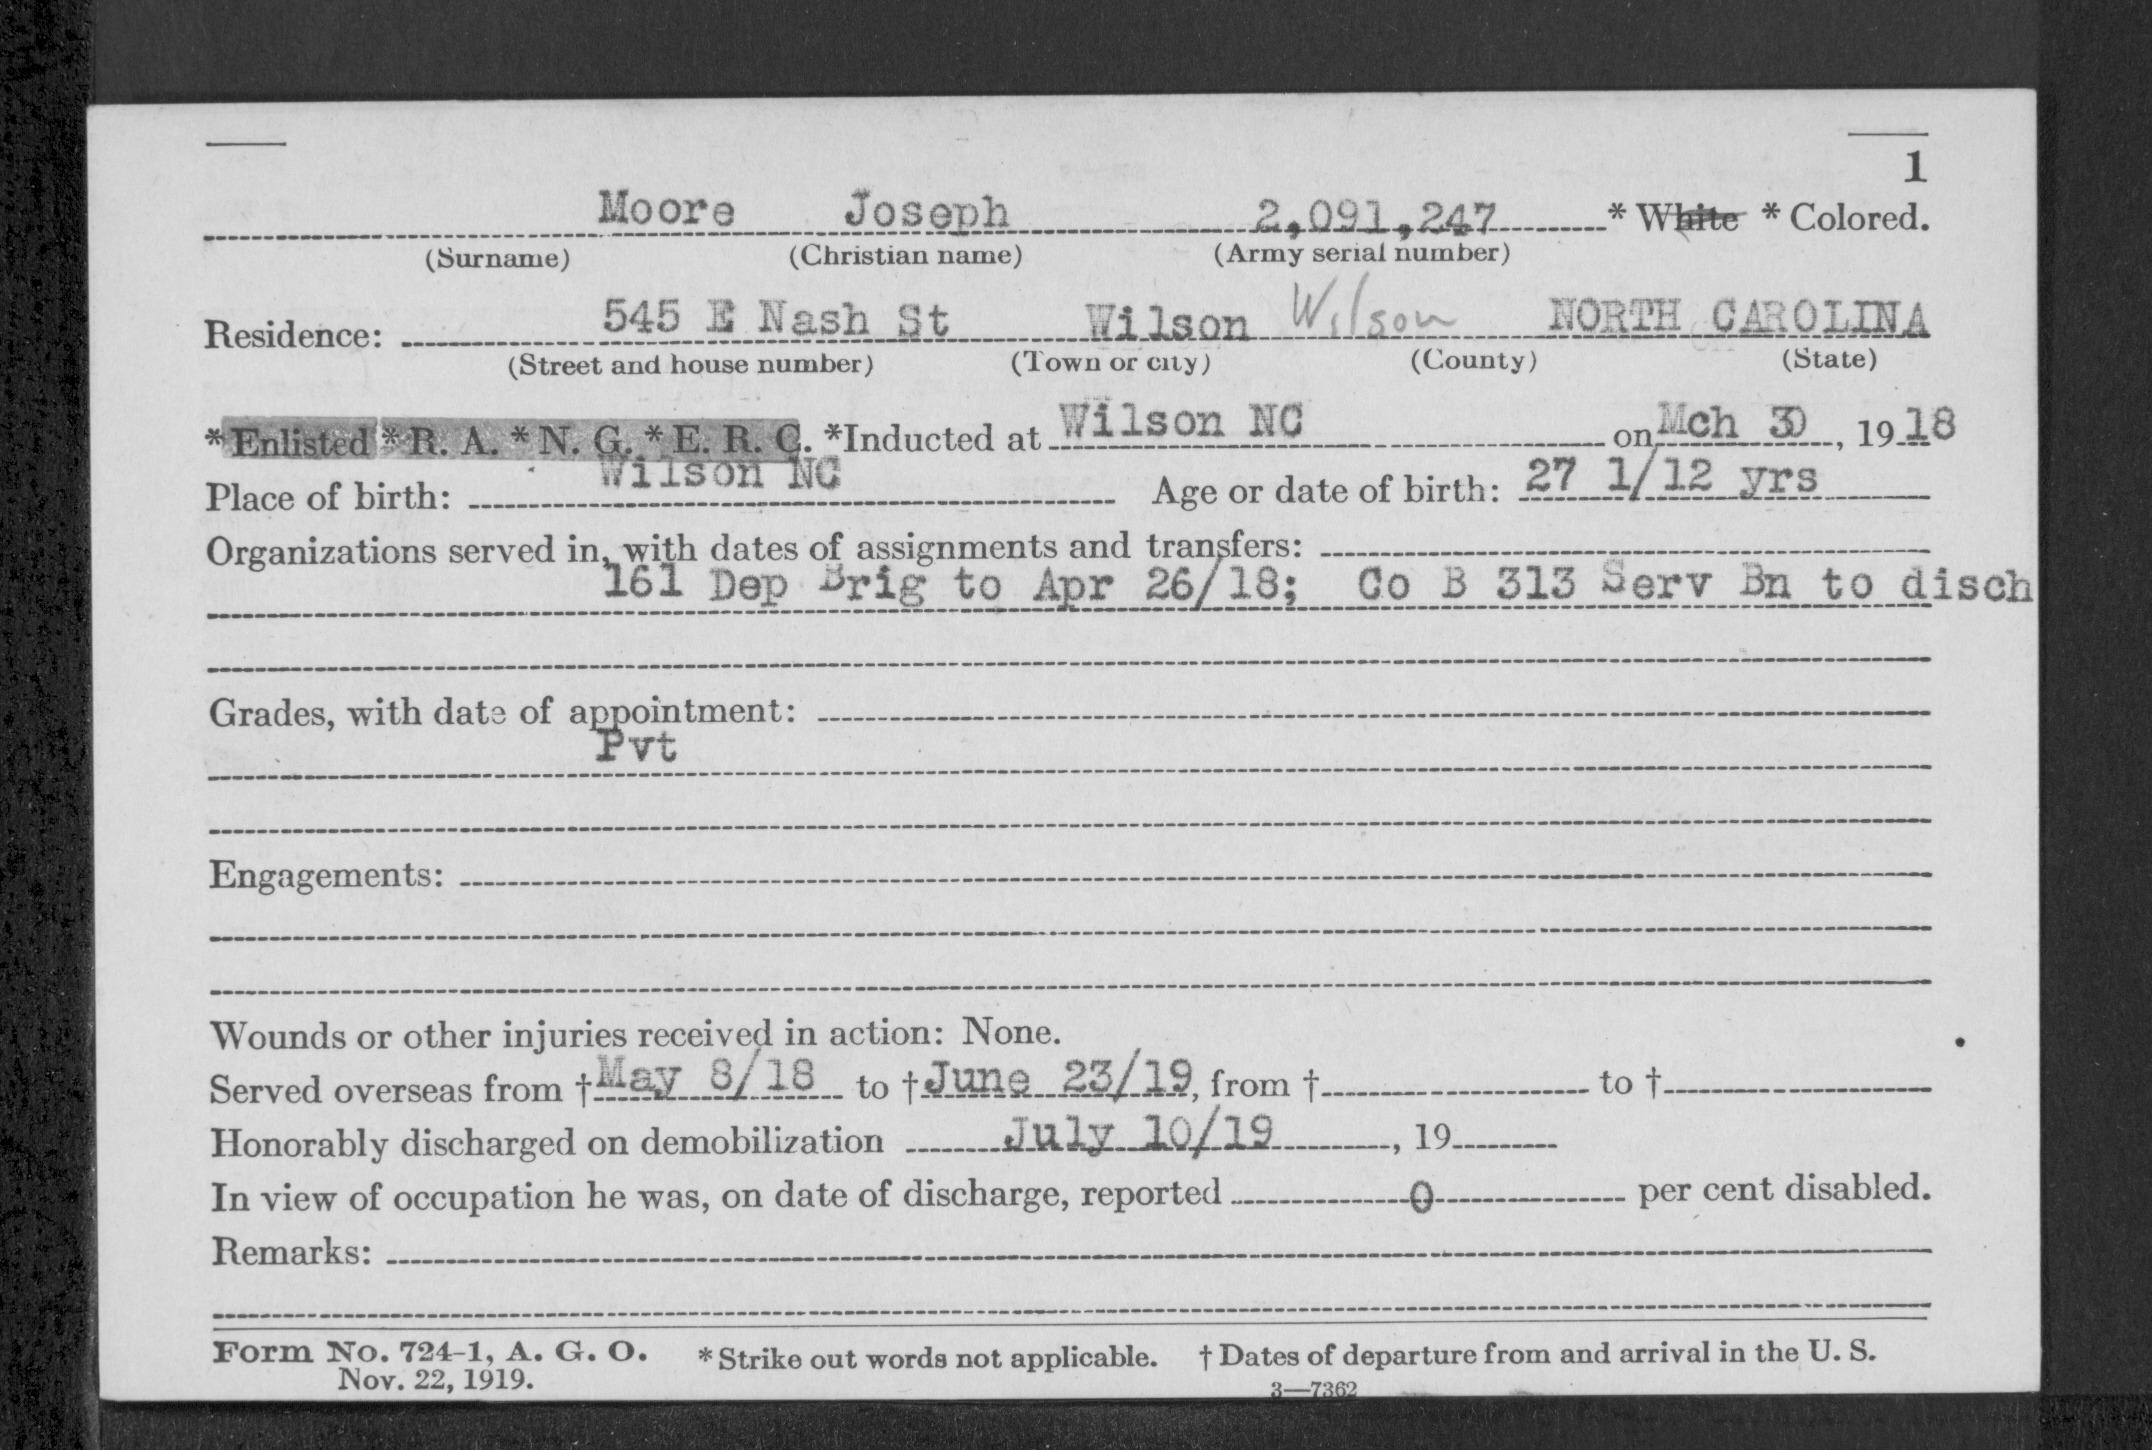 1
Moore Joseph 2,091,247 * White * Colored.
(Surname) (Christian name) (Army serial number)
Residence: 545 E Nash St Wilson Wilson NORTH CAROLINA
(Street and house number) (Town or city) (County) (State)
*Enlisted *R. A. *N. G. *E. R. C. *Inducted at Wilson NC on Mch 30, 1918
Place of birth: Wilson NC Age or date of birth: 27 1/12 yrs
Organizations served in, with dates of assignments and transfers:
161 Dep Brig to Apr 26/18; Co B 313 Serv Bn to disch
Grades, with date of appointment:
Pvt
Engagements:
Wounds or other injuries received in action: None.
Served overseas from †May 8/18 to †June 23/19, from † to †
Honorably discharged on demobilization July 10/19, 19
In view of occupation he was, on date of discharge, reported 0 per cent disabled.
Remarks:
Form No. 724-1, A. G. O. *Strike out words not applicable. †Dates of departure from and arrival in the U. S.
Nov. 22, 1919. 3—7362